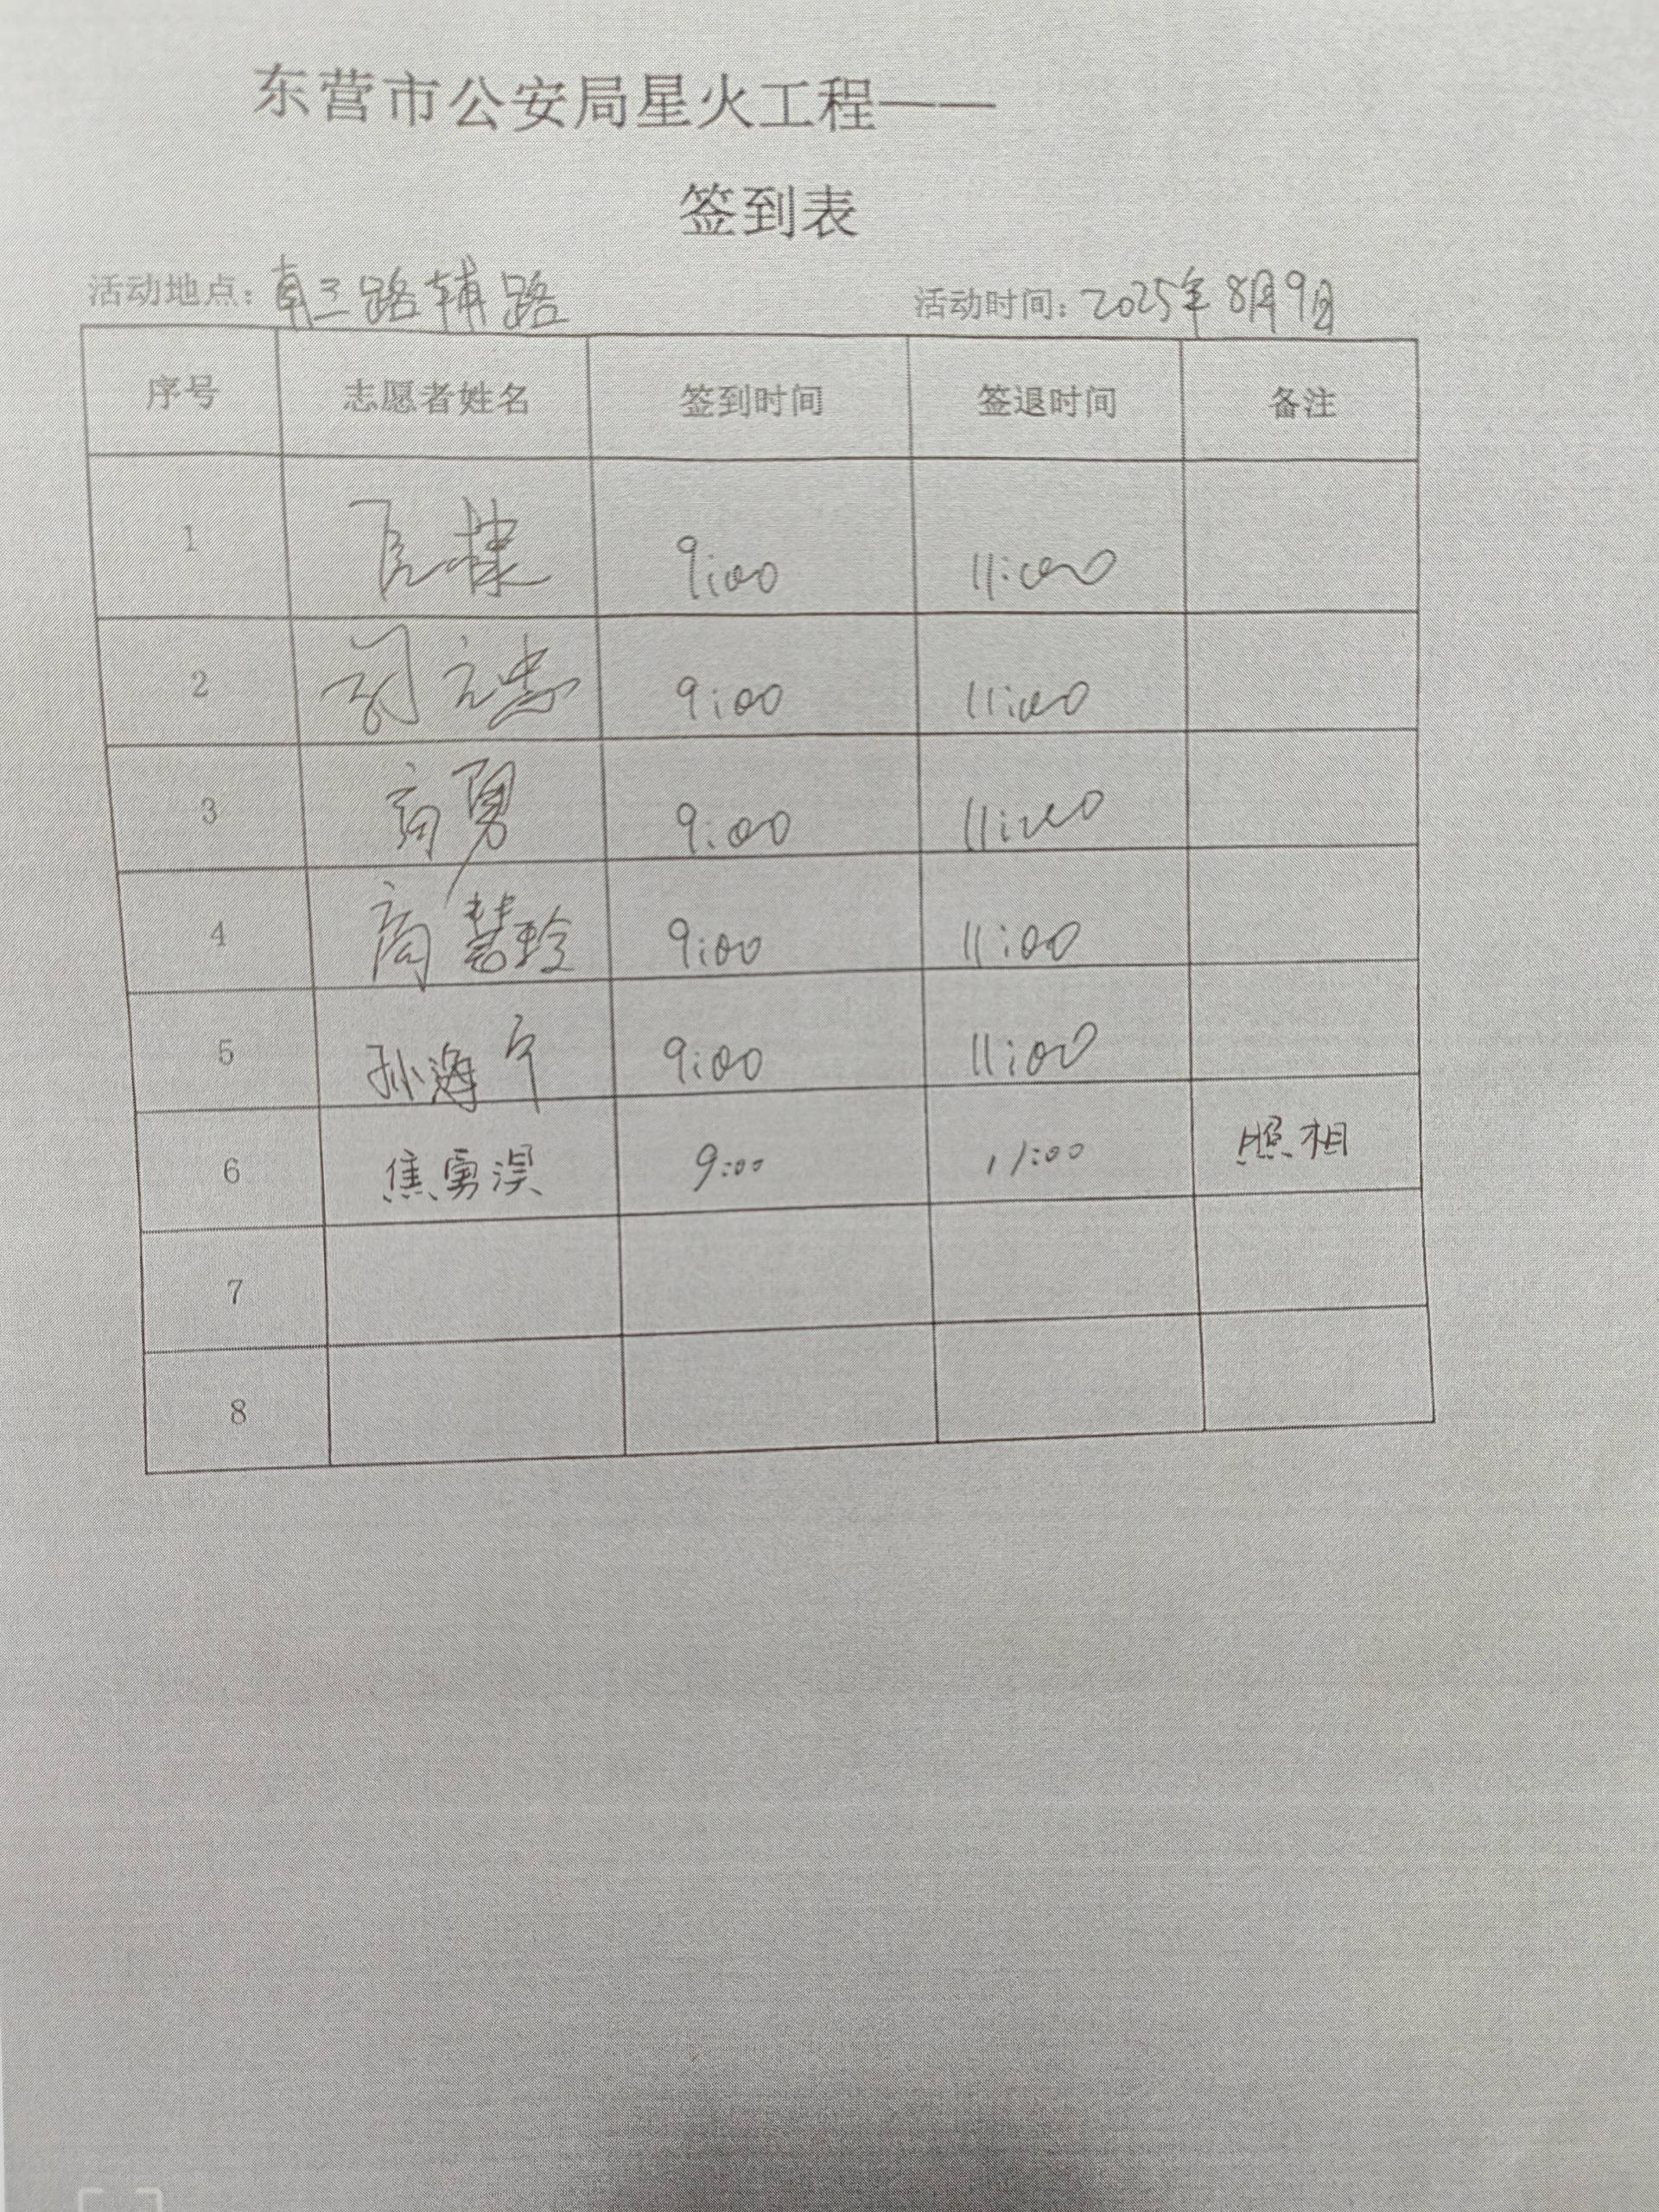 东营市公安局星火工程——
签到表
活动地点：南二路辅路 活动时间：2025年8月9日
序号 志愿者姓名 签到时间 签退时间 备注
1 9:00 11:00
2 9:00 11:00
3 商勇 9:00 11:00
4 商慧玲 9:00 11:00
5 孙海 9:00 11:00
6 焦勇淏 9:00 11:00 照相
7
8